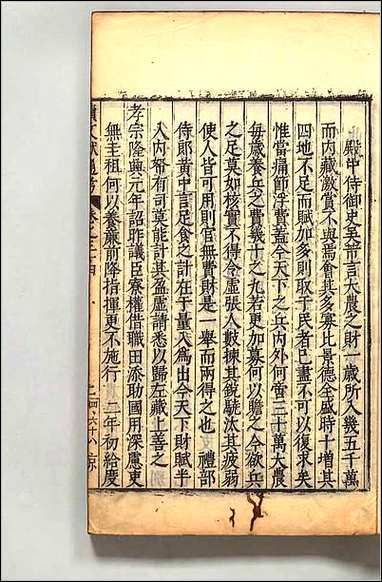 殿中侍御史吴芾言大農之財一歲所入幾五千萬
而内藏激賞不與焉會其多寡比景德全盛時十增其
四地不足而賦加多則取于民者已盡不可以復求矣
惟當痛節浮費蓋今天下之兵内外何啻三十萬大農
每歲養兵之費幾十之九若更加募何以贍之今欲兵
之足莫如核實不得令虛張人數揀其銳驍汰其疲弱
使人皆可用則官無費財是一舉而兩得之也 禮部
侍郎黄中言足食之計在于量入爲出今天下財賦半
入内帑有司莫能計其盈虛請悉以歸左藏上善之
孝宗隆興元年詔昨議臣寮權借職田添助國用深慮吏
無圭租何以養廉前降指揮更不施行 二年初給度
續文獻通考 卷之二十四